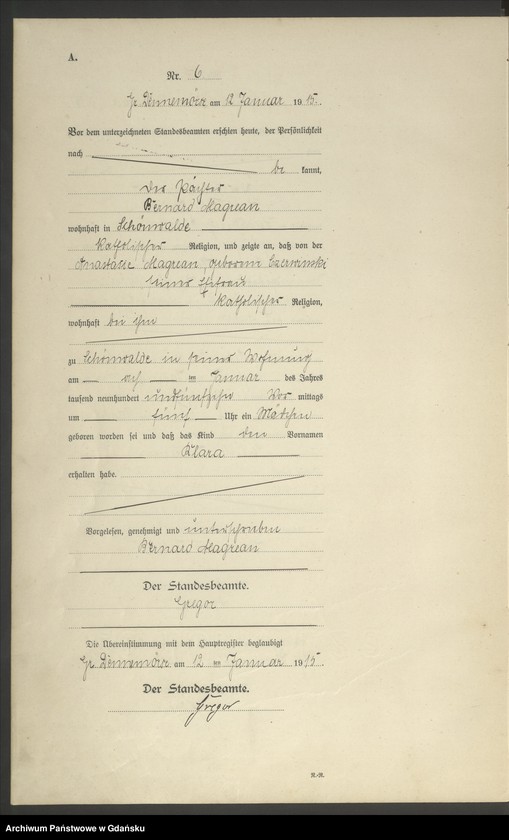 A.
Nr. 6
Gr Dennemörse am 12 Januar 1915.
Vor dem unterzeichneten Standesbeamten erschien heute, der Persönlichkeit
nach be kannt,
der Pächter
Bernard Magrean
wohnhaft in Schönwalde
katholischer Religion, und zeigte an, daß von der
Anastasie Magrean, geborene Czerwinski
seiner Ehefrau
katholischer Religion,
wohnhaft bei ihm
zu Schönwalde in seiner Wohnung
am acht im Januar des Jahres
tausend neunhundert undfünfzehn Vor mittags
um fünf Uhr ein Mädchen
geboren worden sei und daß das Kind den Vornamen
Klara
erhalten habe.
Vorgelesen, genehmigt und unterschrieben
Bernard Magrean
Der Standesbeamte.
Gregor
Die Übereinstimmung mit dem Hauptregister beglaubigt
Gr. am 12 ten Januar 1915.
Der Standesbeamte.
Gregor
R.-R.
Archiwum Państwowe w Gdańsku